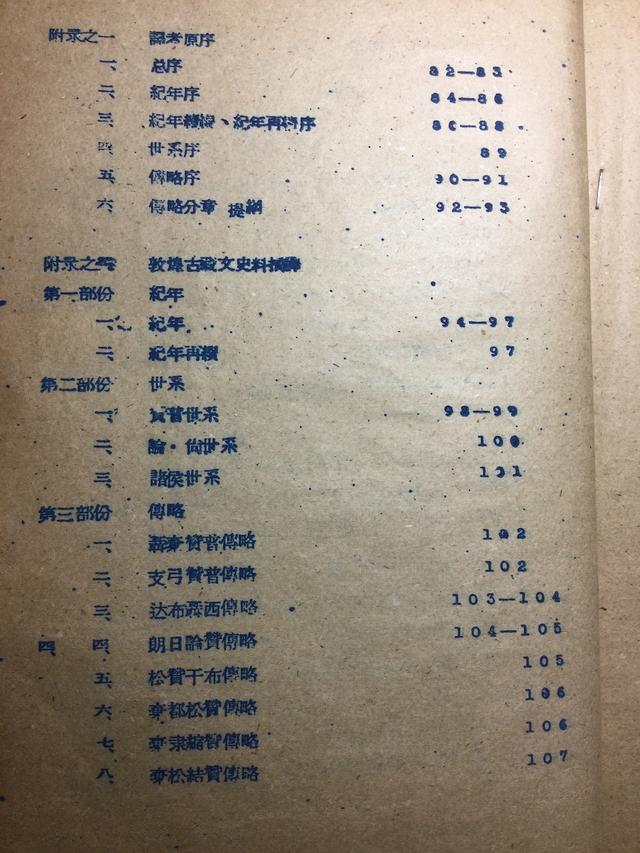 附录之一 譯考原序
一、 总序 82—83
二、 紀年序 84—86
三、 紀年續後、紀年再續序 86—88
四、 世系序 89
五、 傳略序 90—91
六、 傳略分章 提綱 92—93
附录之 敦煌古藏文史料摘譯
第一部份 紀年
一、 紀年 94—97
二、 紀年再續 97
第二部份 世系
一、 贊普世系 98—99
二、 論·尙世系 100
三、 諸侯世系 101
第三部份 傳略
一、 贊普傳略 102
二、 支弓贊普傳略 102
三、 达布聶西傳略 103—104
四、 四、 朗日論贊傳略 104—105
五、 松贊干布傳略 105
六、 棄都松贊傳略 106
七、 棄隶縮贊傳略 106
八、 棄松結贊傳略 107